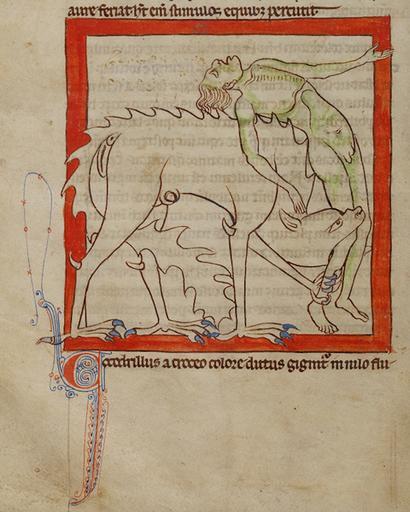 aure feriat. stimulos percutit.
Cocodrillus a croceo colore dictus gignit᷑ in nilo flu